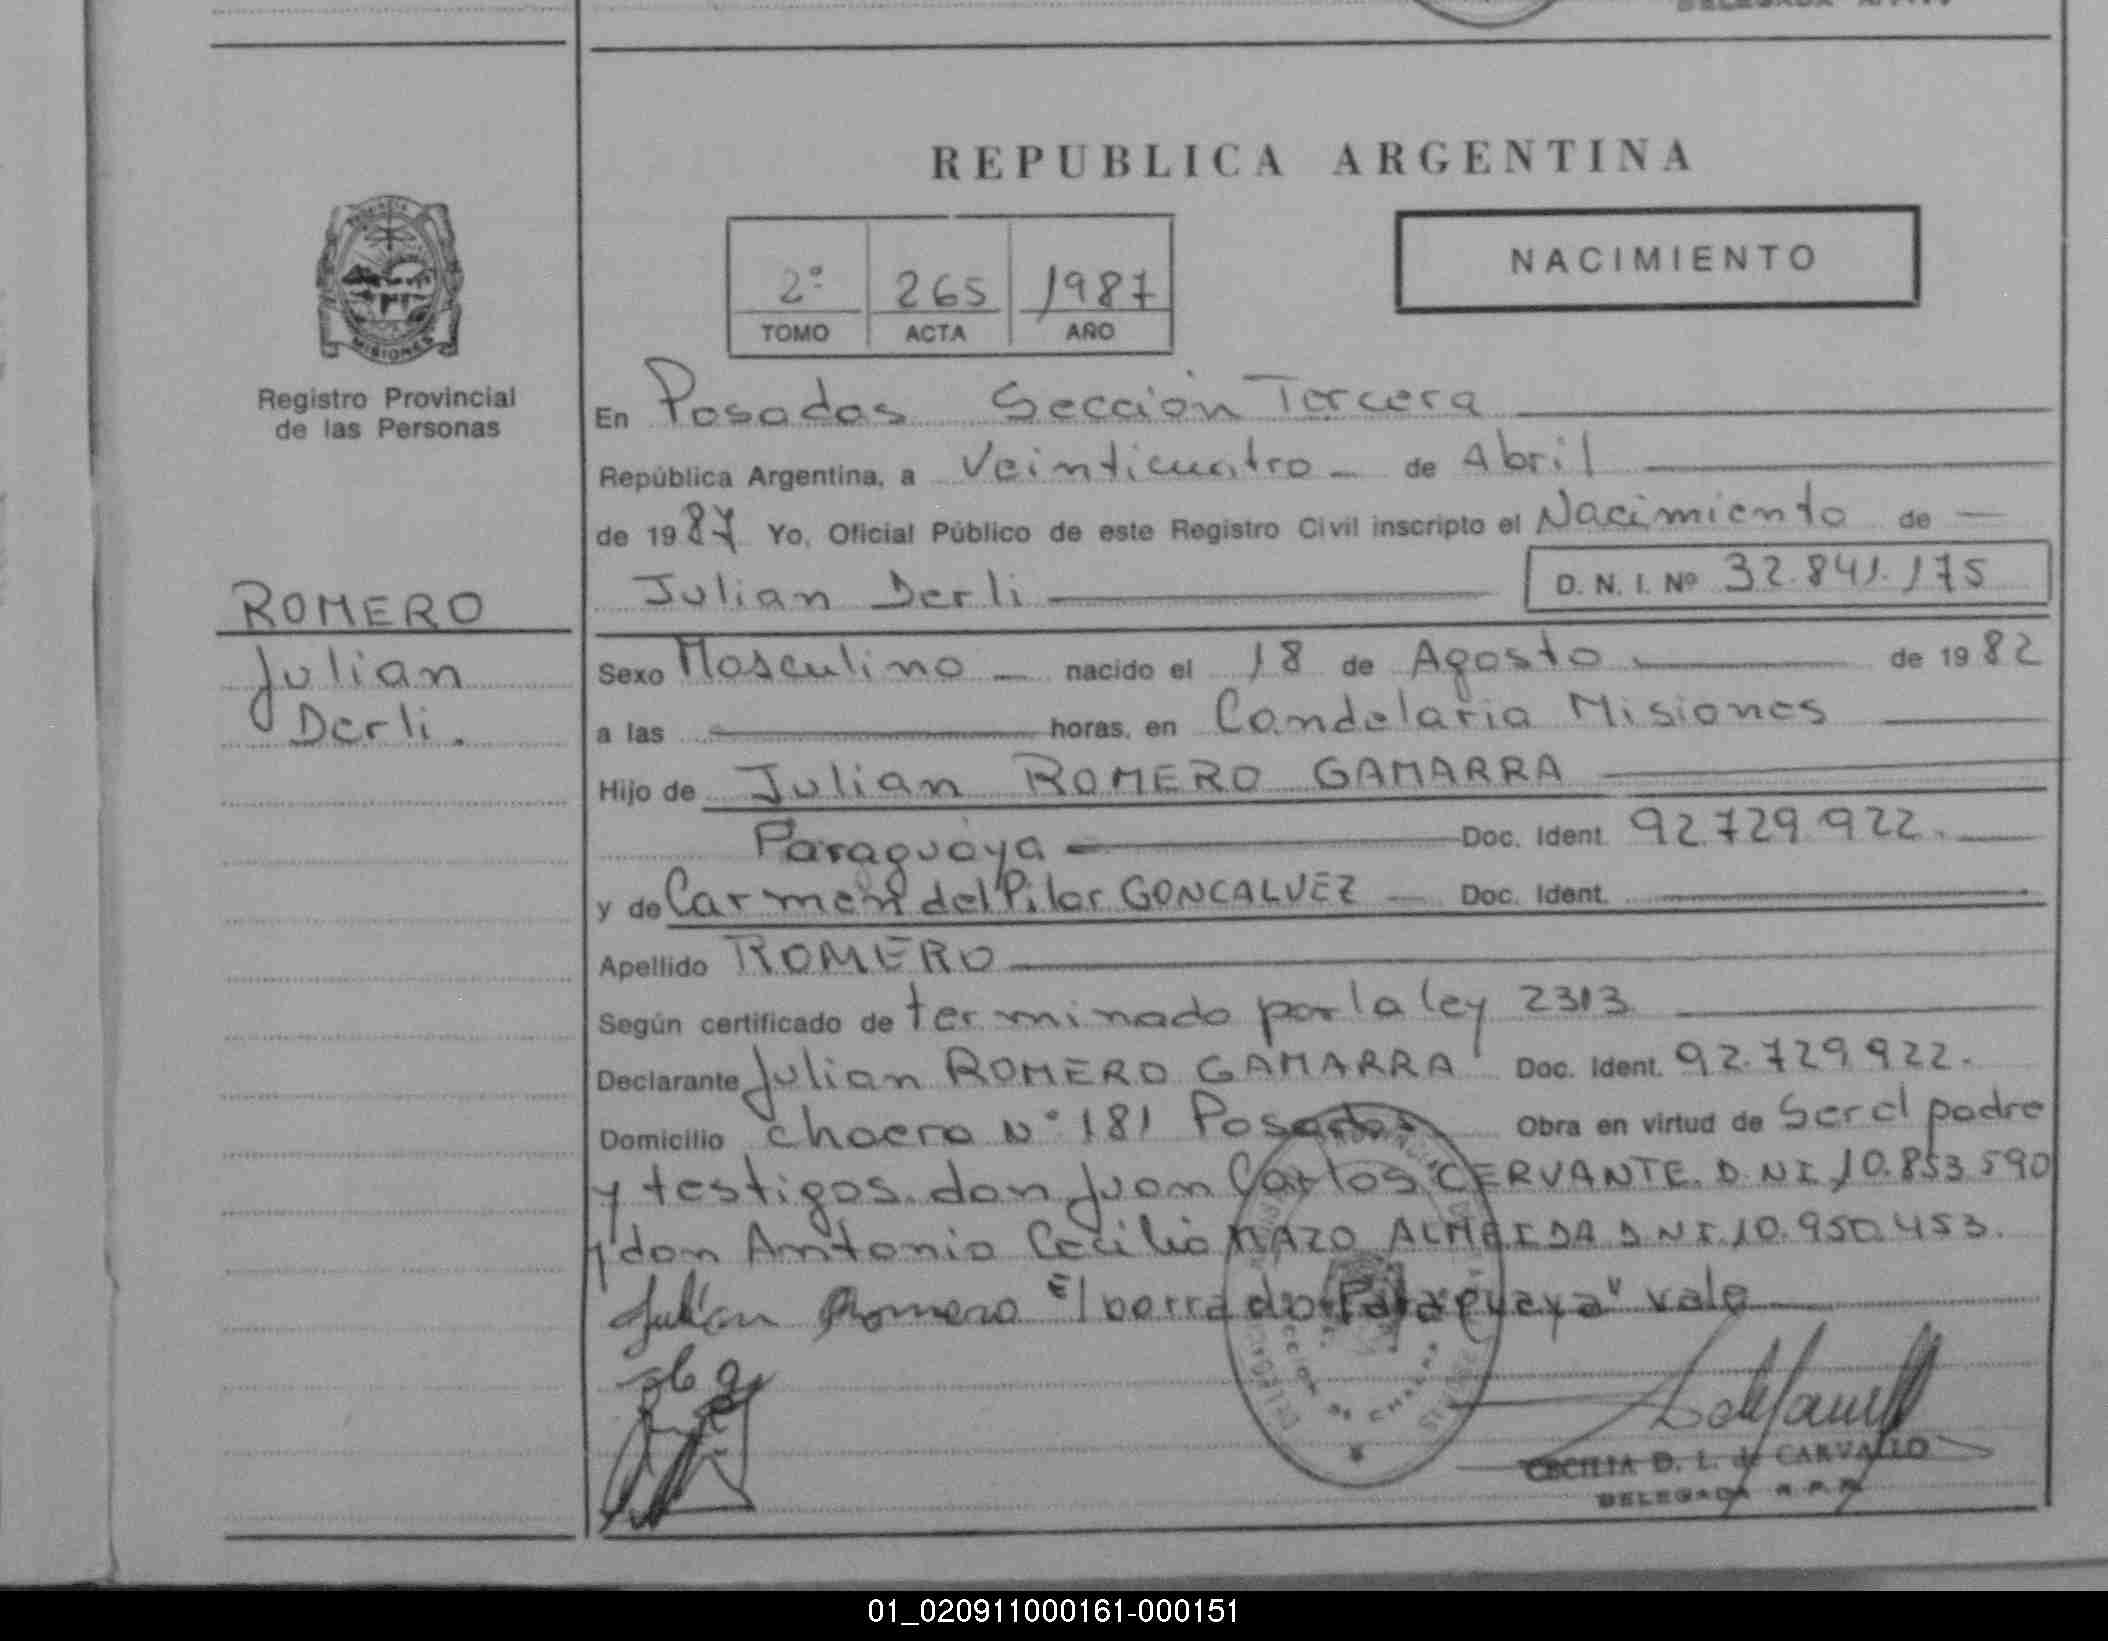 REPUBLICA ARGENTINA
NACIMIENTO
2º 265 1987
TOMO ACTA AÑO
MISIONES
Registro Provincial
de las Personas
ROMERO
Julian
Derli.
En Posadas Sección Tercera
República Argentina, a Veinticuatro de Abril
de 1987 Yo, Oficial Público de este Registro Civil inscripto el Nacimiento de
Julian Derli D. N. I. Nº 32.841.175
Sexo Masculino nacido el 18 de Agosto de 1982
a las horas, en Candelaria Misiones
Hijo de Julian ROMERO GAMARRA
Paraguaya Doc. Ident. 92.729.922.
y de Carmen del Pilar GONCALVEZ Doc. Ident.
Apellido ROMERO
Según certificado de terminado por la ley 2313
Declarante Julian ROMERO GAMARRA Doc. Ident. 92.729.922.
Domicilio chacra Nº 181 Posadas Obra en virtud de Ser el padre
y testigos don Juan Carlos CERVANTE. D.N.I. 10.853.590
y don Antonio Cecilio MAZO ALMEIDA D.N.I. 10.950.453.
Julián Romero El borrado "Paraguaya" vale
CECILIA D. L. de CARVALLO
DELEGADA R.P.P.
01_020911000161-000151